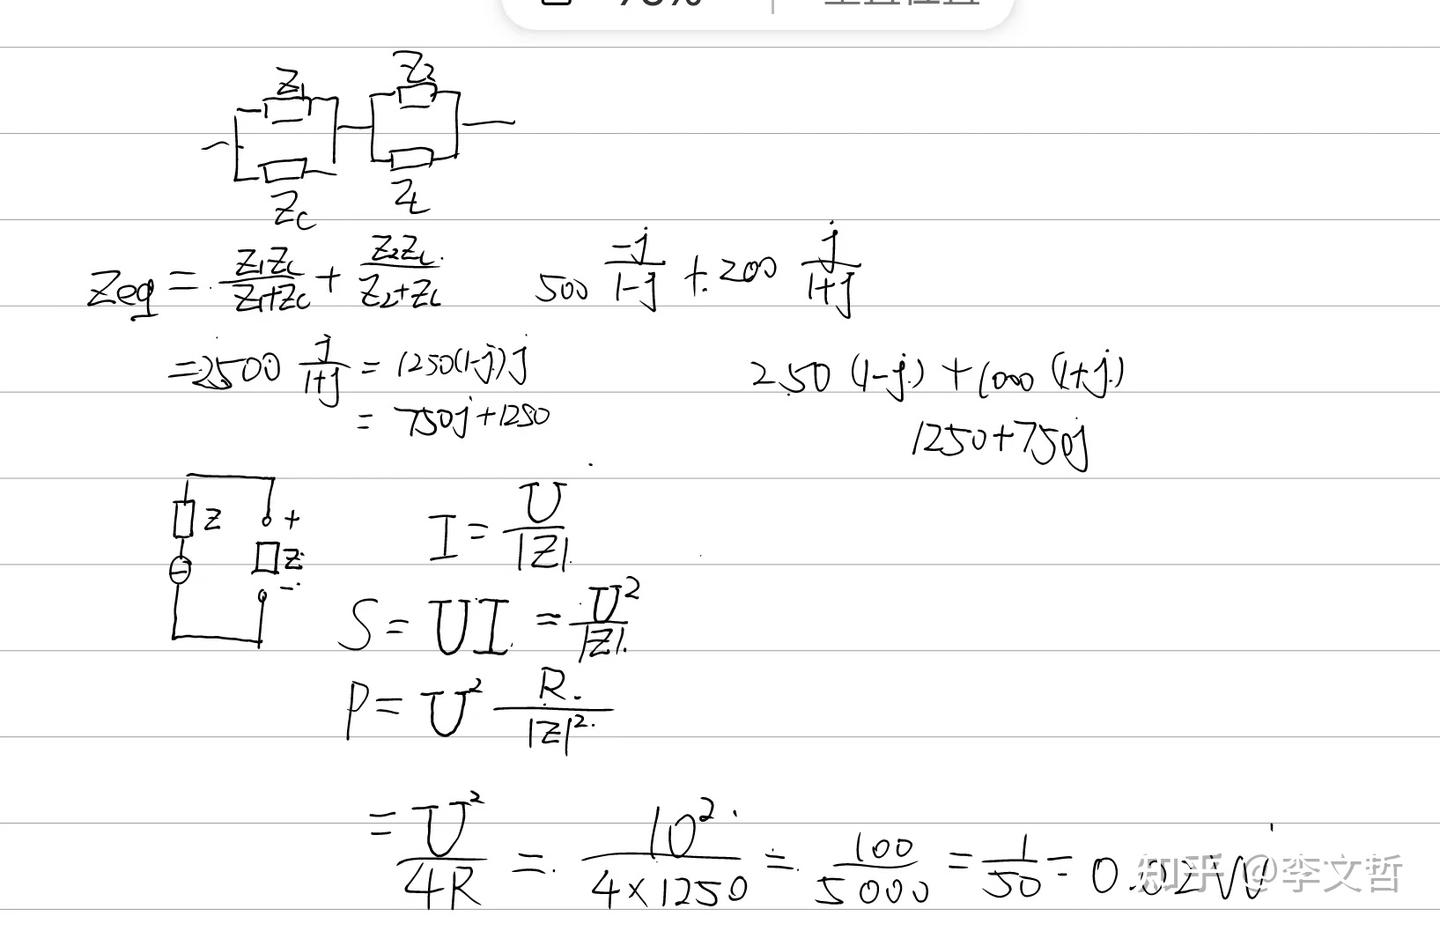 Z1
Z2
Zc
ZL
Zeq = Z1Zc/(Z1+Zc) + Z2ZL/(Z2+ZL)
500 -j/(1-j) + 200 j/(1+j)
= 2500 j/(1+j) = 1250(1-j)j
250 (1-j) + 1000 (1+j)
= 750j+1250
1250+750j
Z
+
Z
-
I = U/|Z|
S = UI = U²/|Z|
P = U² R/|Z|²
= U²/4R = 10²/(4×1250) = 100/5000 = 1/50 = 0.02W
知乎 @李文哲